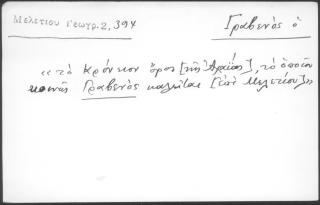 Μελετίου Γεωγρ. 2, 394
Γραβενὸς ὁ
« τὸ Κρόνιον ὄρος [τῆς Ἀχαΐας], τὸ ὁποῖον
κοινῶς Γραβενὸς καλεῖται [ἐπὶ Μελετίου] »